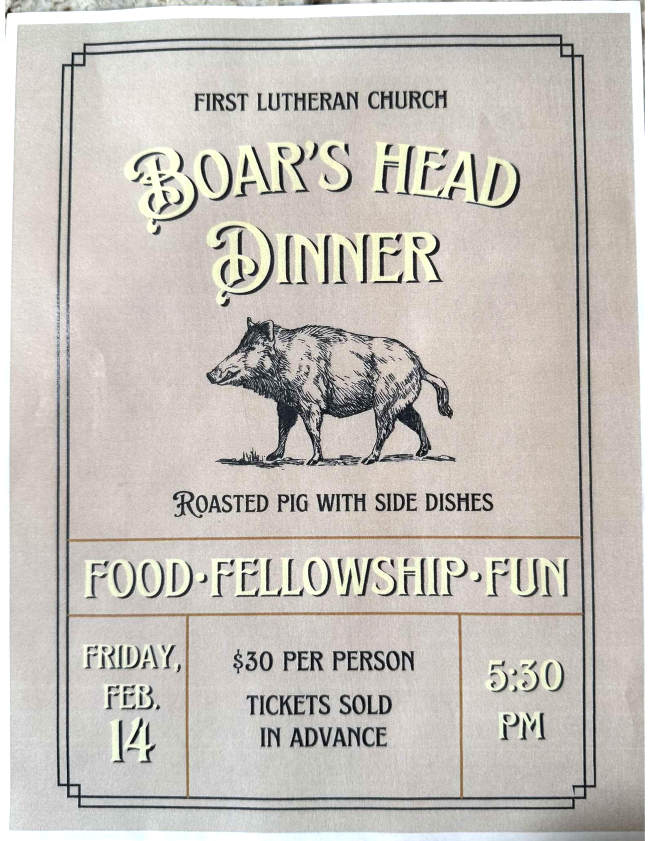 FIRST LUTHERAN CHURCH
BOAR'S HEAD
DINNER
ROASTED PIG WITH SIDE DISHES
FOOD·FELLOWSHIP·FUN
FRIDAY,
FEB.
14
$30 PER PERSON
TICKETS SOLD
IN ADVANCE
5:30
PM